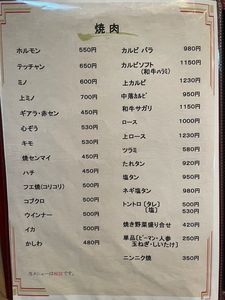 焼肉
ホルモン 550円
テッチャン 650円
ミノ 600円
上ミノ 700円
ギアラ・赤セン 450円
心ぞう 500円
キモ 530円
焼センマイ 450円
ハチ 450円
フエ焼(コリコリ) 500円
コブクロ 500円
ウインナー 500円
イカ 500円
かしわ 480円
カルビ バラ 980円
カルビソフト 1150円
(和牛ハラミ)
上カルビ 1230円
中落カルビ 930円
和牛サガリ 1150円
ロース 1000円
上ロース 1230円
ツラミ 580円
たれタン 920円
塩タン 920円
ネギ塩タン 920円
トントロ [タレ] 500円
[塩] 530円
焼き野菜盛り合せ 420円
単品[ピーマン・人参 250円
玉ねぎ・しいたけ]
ニンニク焼 350円
当メニューは税別です。